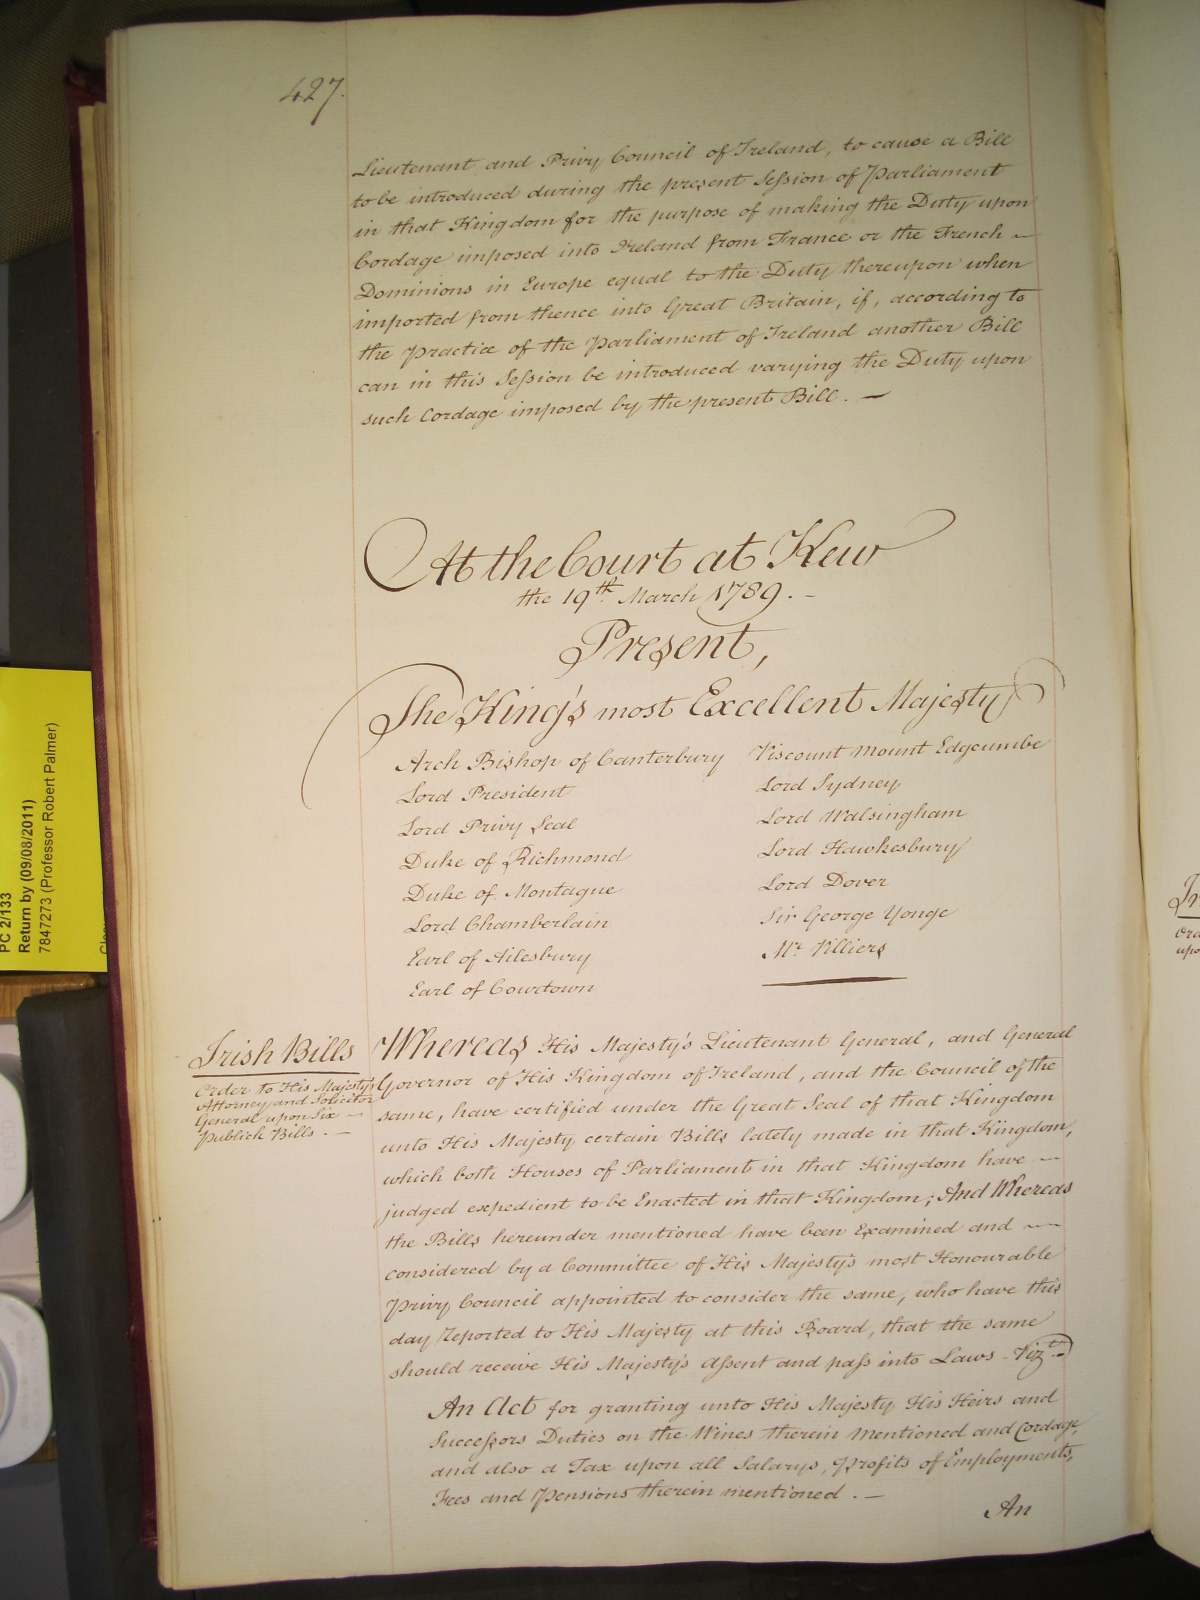 427.
Lieutenant and Privy Council of Ireland, to cause a Bill
to be introduced during the present Session of Parliament
in that Kingdom for the purpose of making the Duty upon
Cordage imposed into Ireland from France or the French —
Dominions in Europe equal to the Duty thereupon when
imported from thence into Great Britain, if, according to
the Practice of the Parliament of Ireland another Bill
can in this Session be introduced varying the Duty upon
such Cordage imposed by the present Bill. —
At the Court at Kew
the 19th March 1789. –
Present,
The King's most Excellent Majesty
Arch Bishop of Canterbury
Lord President
Lord Privy Seal
Duke of Richmond
Duke of Montague
Lord Chamberlain
Earl of Ailesbury
Earl of Courtown
Viscount Mount Edgcumbe
Lord Sydney
Lord Walsingham
Lord Hawkesbury
Lord Dover
Sir George Yonge
Mr Villiers
Irish Bills
Order to His Majesty's
Attorney and Solicitor
General upon Six —
Publick Bills. —
Whereas His Majesty's Lieutenant General, and General
Governor of His Kingdom of Ireland, and the Council of the
same, have certified under the Great Seal of that Kingdom
unto His Majesty certain Bills lately made in that Kingdom,
which both Houses of Parliament in that Kingdom have —
judged expedient to be Enacted in that Kingdom; And Whereas
the Bills hereunder mentioned have been Examined and —
considered by a Committee of His Majesty's most Honourable
Privy Council appointed to consider the same, who have this
day reported to His Majesty at this Board, that the same
should receive His Majesty's Assent and pass into Laws - Vizt.
An Act for granting unto His Majesty His Heirs and
Successors Duties on the Wines therein mentioned and Cordage,
and also a Tax upon all Salarys, Profits of Employments,
Fees and Pensions therein mentioned. —
An
PC 2/133
Return by (09/08/2011)
7847273 (Professor Robert Palmer)